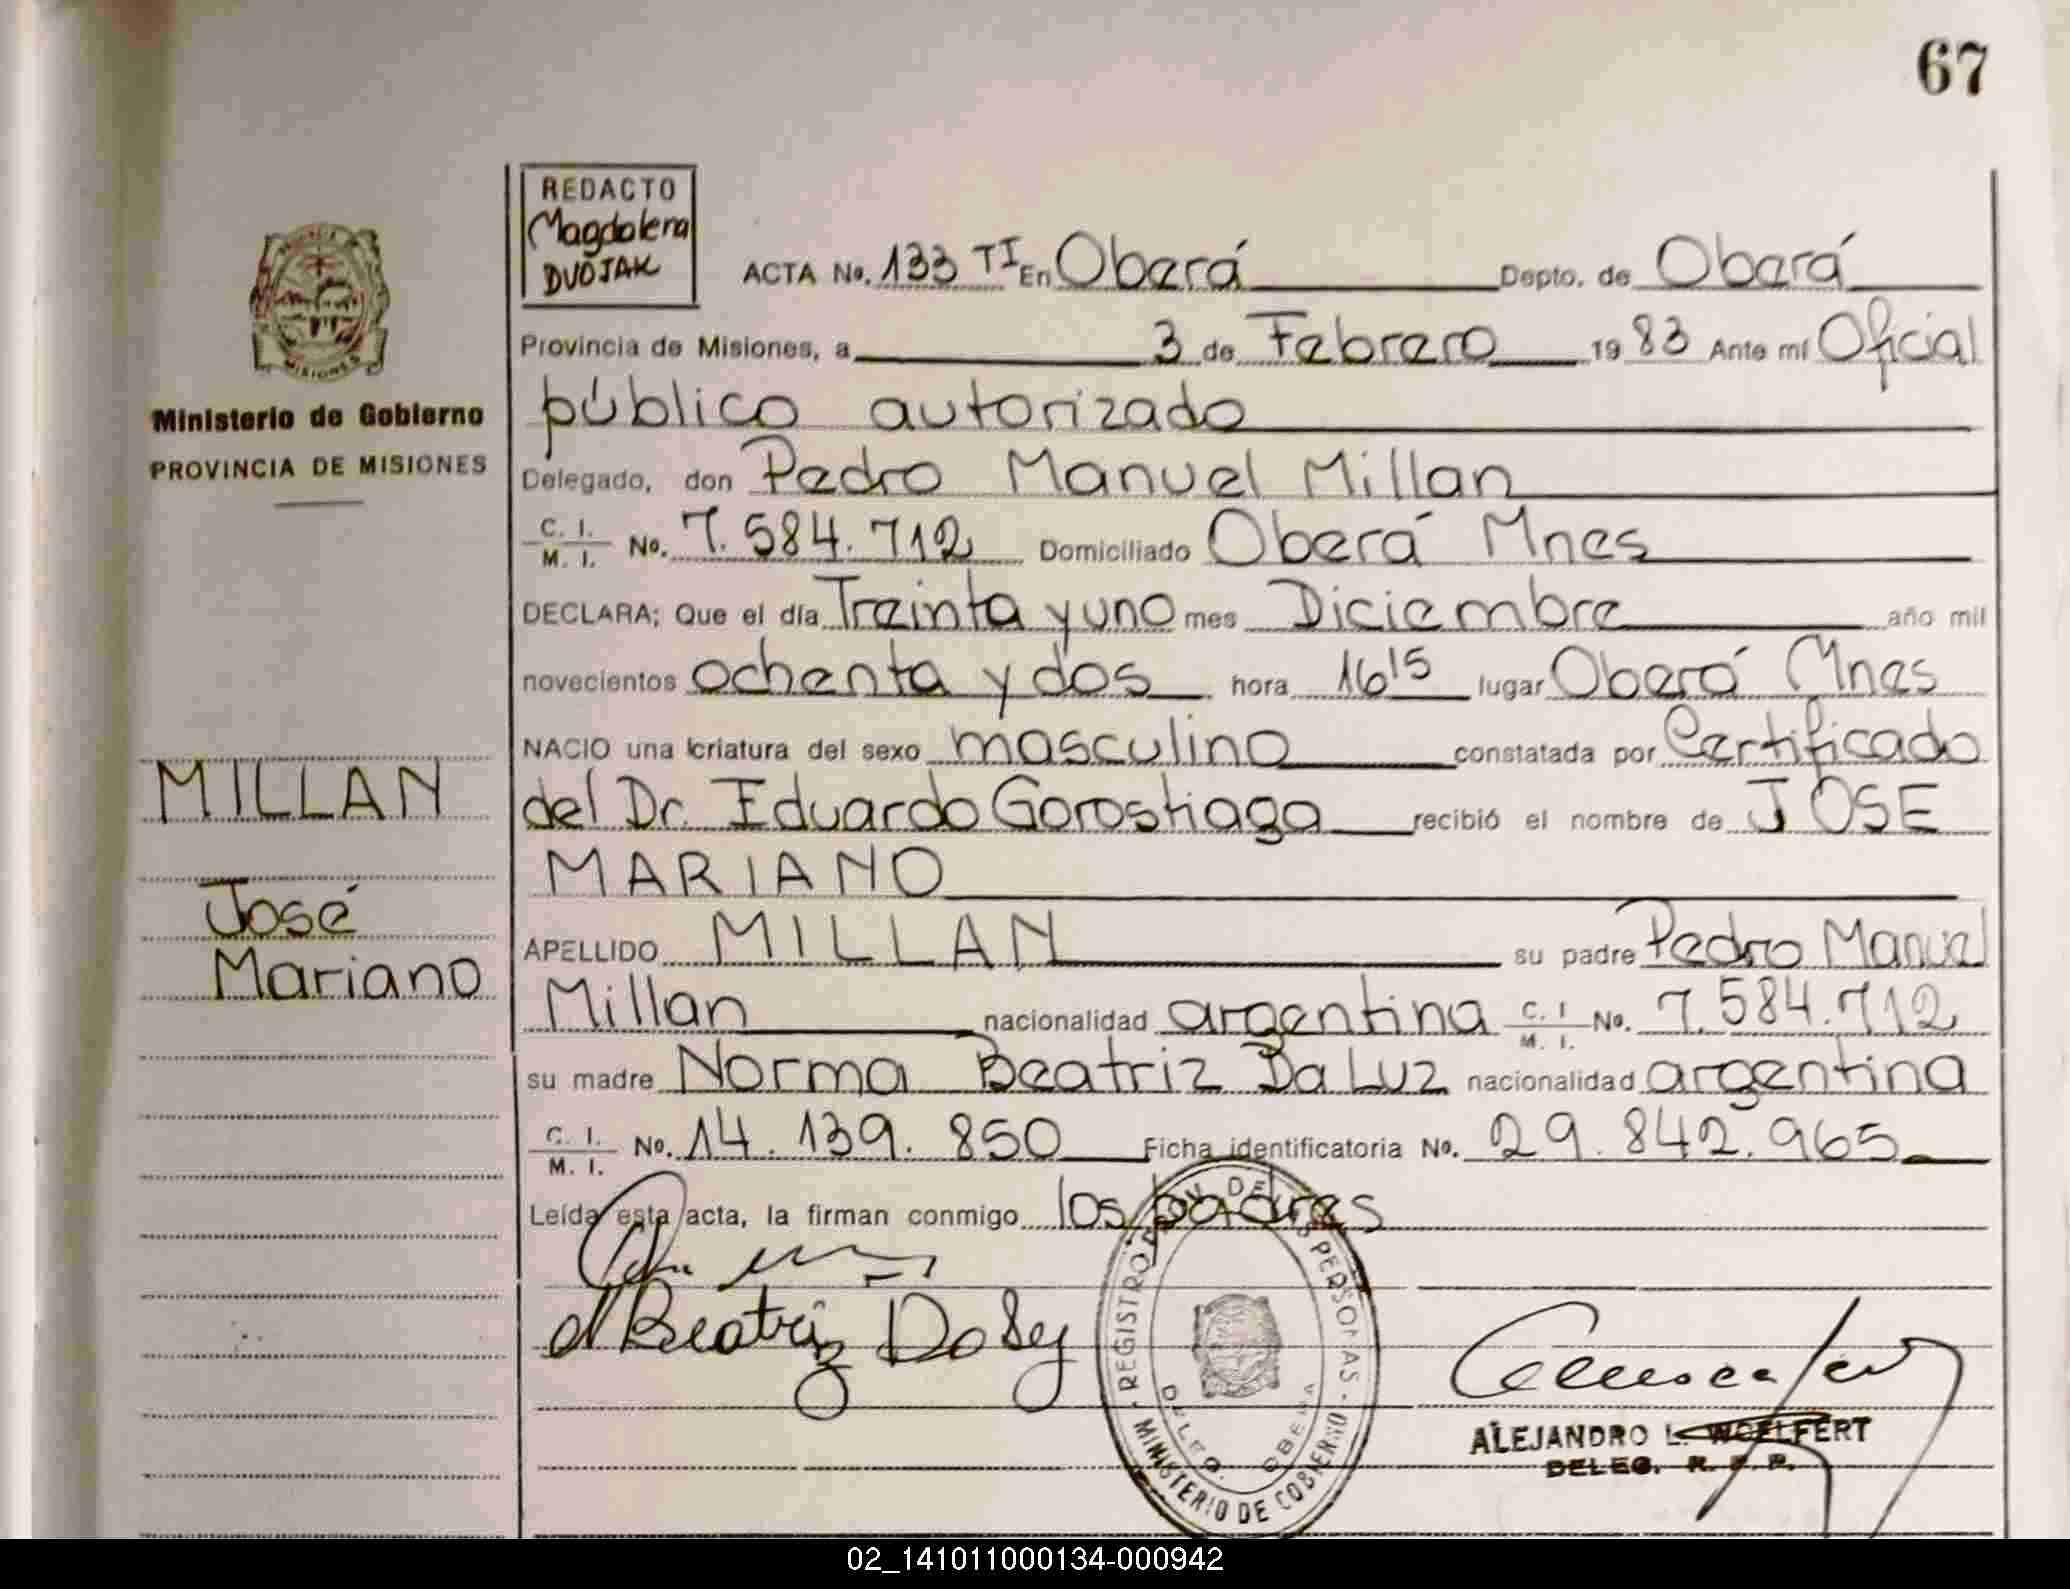 67
REDACTO
Magdalena
DVOJAK
ACTA No. 133 TI En Oberá Depto. de Oberá
Provincia de Misiones, a 3 de Febrero 1983 Ante mí Oficial
público autorizado
Ministerio de Gobierno
PROVINCIA DE MISIONES
Delegado, don Pedro Manuel Millan
C. I. M. I. No. 7.584.712 Domiciliado Oberá Mnes
DECLARA; Que el día Treinta y uno mes Diciembre año mil
novecientos ochenta y dos hora 16 15 lugar Oberá Mnes
NACIO una criatura del sexo masculino constatada por Certificado
MILLAN
del Dr. Eduardo Gorostiaga recibió el nombre de JOSE
MARIANO
José
Mariano
APELLIDO MILLAN su padre Pedro Manuel
Millan nacionalidad argentina C. I. M. I. No. 7.584.712
su madre Norma Beatriz Da Luz nacionalidad argentina
C. I. M. I. No. 14.139.850 Ficha identificatoria No. 29.842.965
Leída esta acta, la firman conmigo los padres
REGISTRO DE LAS PERSONAS
DELEG. OBERA
MINISTERIO DE GOBIERNO
ALEJANDRO L. WOELFERT
DELEG. R. P. P.
02_141011000134-000942